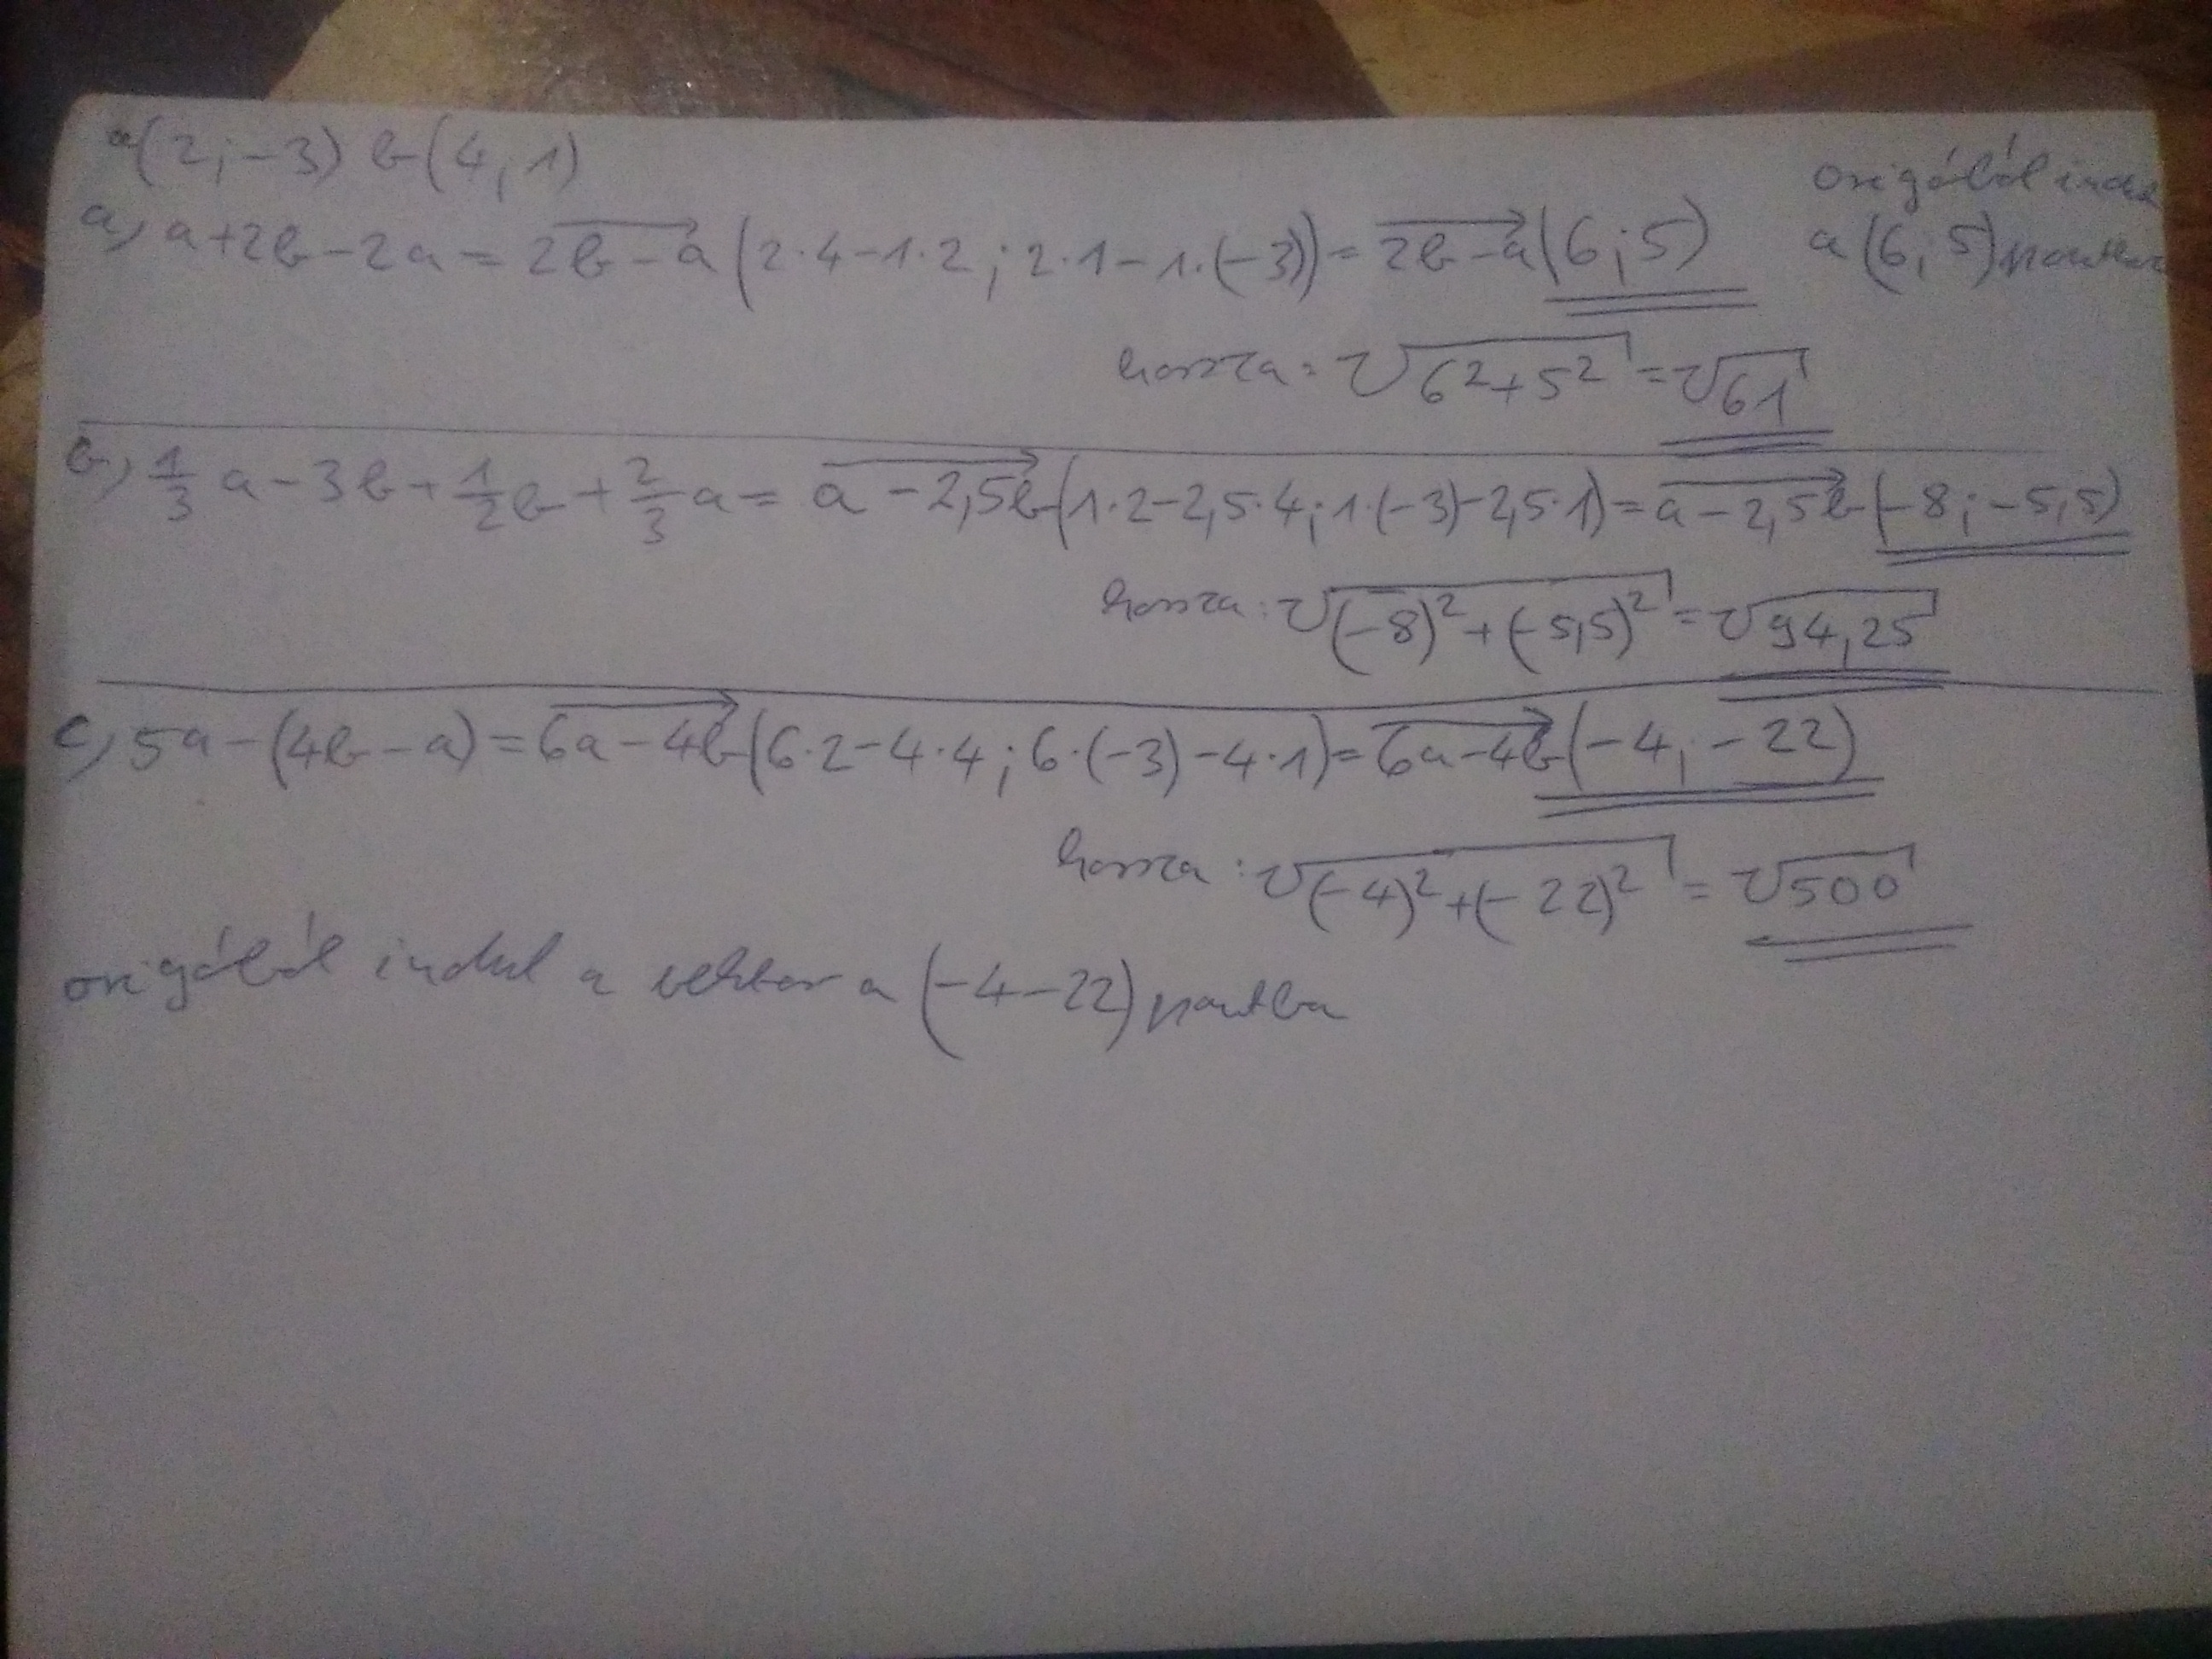 a(2;-3) b(4;1)
origóból indul
a, a+2b-2a = 2b-a (2·4-1·2; 2·1-1·(-3)) = 2b-a (6;5) a (6;5) pontba
hossza: √6²+5² = √61
b, 1/3 a - 3b + 1/2 b + 2/3 a = a-2,5b (1·2-2,5·4; 1·(-3)-2,5·1) = a-2,5b (-8; -5,5)
hossza: √(-8)²+(-5,5)² = √94,25
c, 5a-(4b-a) = 6a-4b (6·2-4·4; 6·(-3)-4·1) = 6a-4b (-4; -22)
hossza: √(-4)²+(-22)² = √500
origóból indul a vektor a (-4-22) pontba